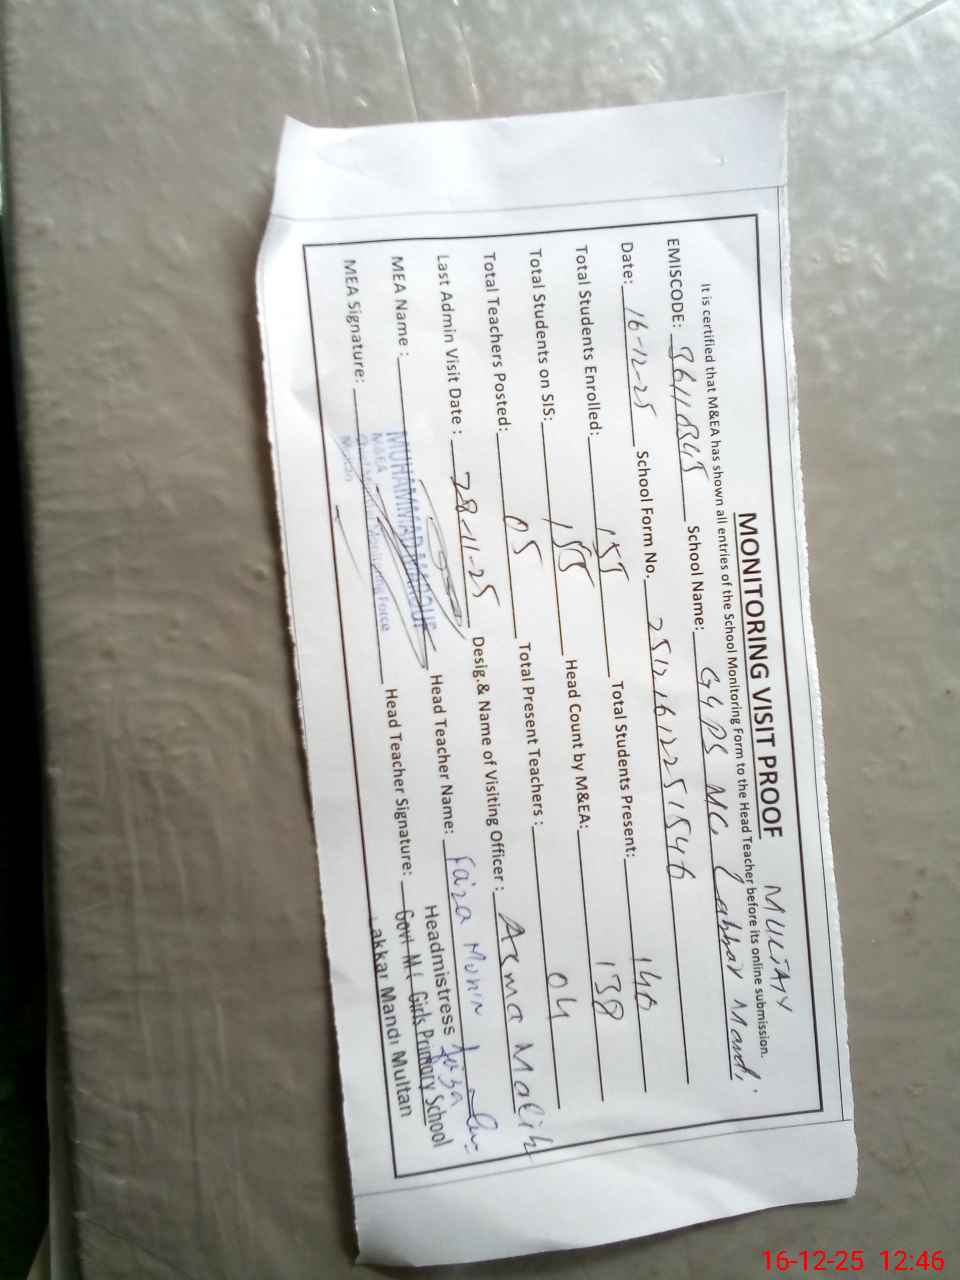 MONITORING VISIT PROOF MULTAN
It is certified that M&EA has shown all entries of the School Monitoring Form to the Head Teacher before its online submission.
EMISCODE: School Name: GGPS MC Lakkar Mandi
Date: 16-12-25 School Form No. 25121612251546
Total Students Enrolled: 155 Total Students Present: 140
Total Students on SIS: 155 Head Count by M&EA: 138
Total Teachers Posted: 05 Total Present Teachers : 04
Last Admin Visit Date : 28-11-25 Desig.& Name of Visiting Officer : Asma Malik
MEA Name : MUHAMMAD MAROUF Head Teacher Name: Faiza
MEA Signature: MEA Monitoring Force Head Teacher Signature:
Headmistress
Govt M.C Girls Primary School
Lakkar Mandi Multan
16-12-25 12:46